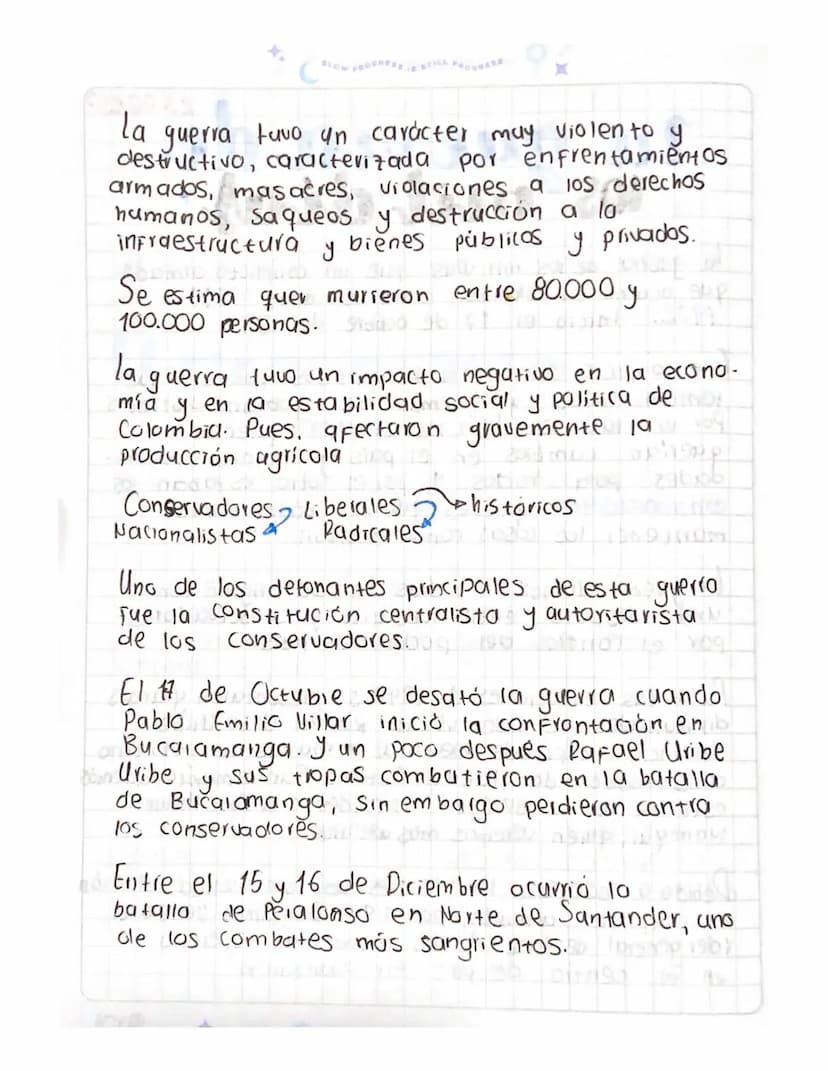 SLOW PROGRESS IS STILL PROGRESS
La guerra tuvo un carácter muy violento y
destructivo, caracterizada por enfrentamientos
armados, masacres, violaciones a los derechos
humanos, saqueos y destrucción a la
infraestructura y bienes públicos y privados.
Se estima que murieron entre 80.000 y
100.000 personas.
la guerra tuvo un impacto negativo en la econo-
mía y en la estabilidad social y politica de
Colombia. Pues, afectaron gravemente la
producción agrícola
Conservadores Liberales históricos
Nacionalistas Radicales
Uno de los detonantes principales de esta guerra
fue la constitución centralista y autoritarista
de los conservadores.
El 17 de Octubre se desató la guerra cuando
Pablo Emilio Villar inició la confrontación en
Bucaramanga. Y un poco después Rafael Uribe
Uribe y sus tropas combatieron en la batalla
de Bucaramanga, sin embargo perdieron contra
los conservadores.
Entre el 15 y 16 de Diciembre ocurrió la
batalla de Peralonso en Norte de Santander, uno
de los combates más sangrientos.